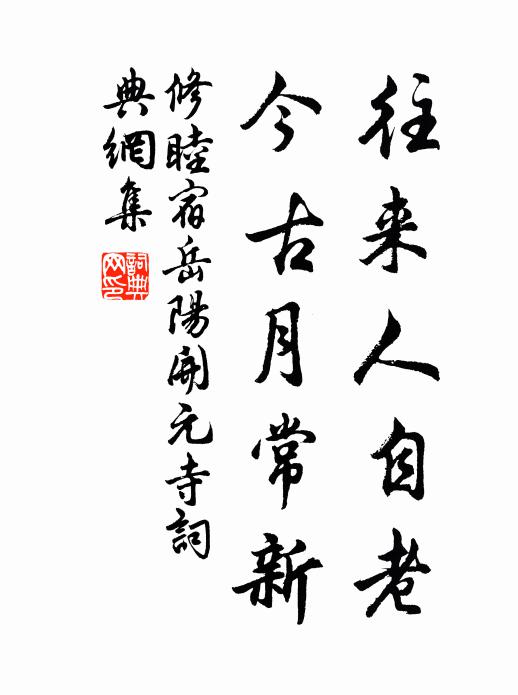 往来人自老
今古月常新
修睦宿岳陽開元寺詞
典網集
詞典網印